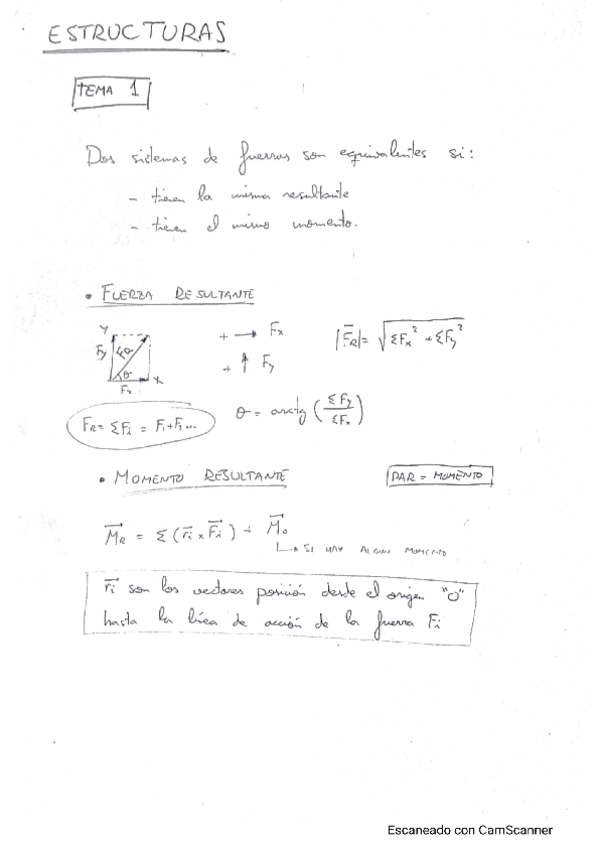 ESTRUCTURAS
TEMA 1
Dos sistemas de fuerzas son equivalentes si:
- tienen la misma resultante
- tienen el mismo momento.
• FUERZA RESULTANTE
Y
Fy
FR
θ
X
Fx
+ → Fx
+ ↑ Fy
|F⃗R| = √(ΣFx² + ΣFy²)
FR = ΣFi = F1 + F2 ...
θ = arctg (ΣFy / ΣFx)
• MOMENTO RESULTANTE
PAR = MOMENTO
M⃗R = Σ (r⃗i x F⃗i) + M⃗o
↳ SI HAY ALGUN MOMENTO
r⃗i son los vectores posición desde el origen "O"
hasta la línea de acción de la fuerza Fi
Escaneado con CamScanner